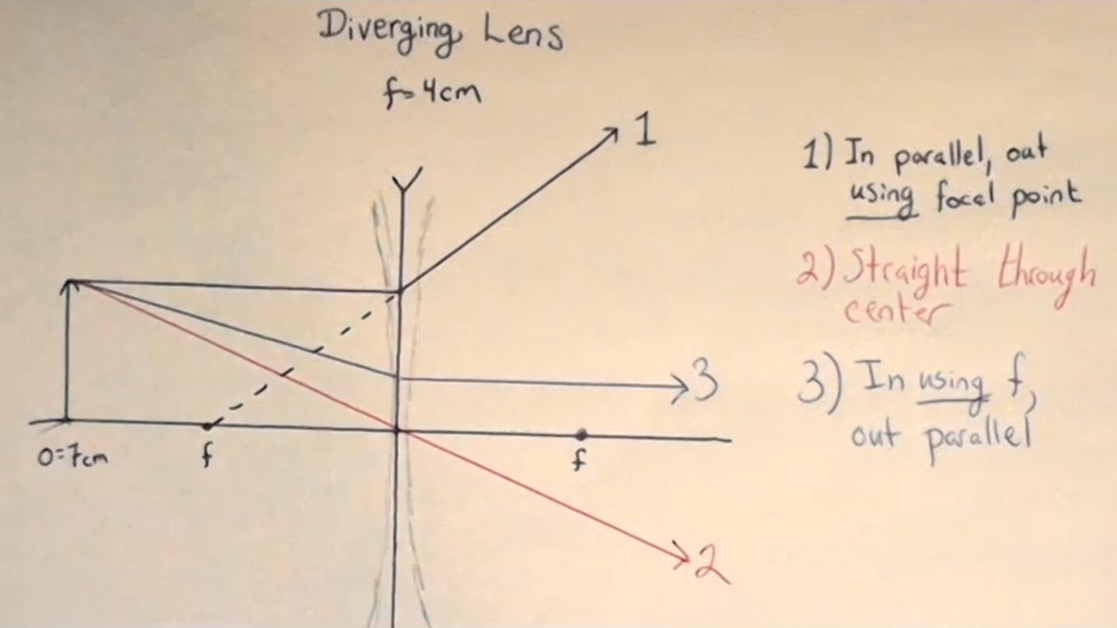 Diverging Lens
f=4cm
1
1) In parallel, out
using focal point
2) Straight through
center
3
3) In using f,
out parallel
o=7cm
f
f
2